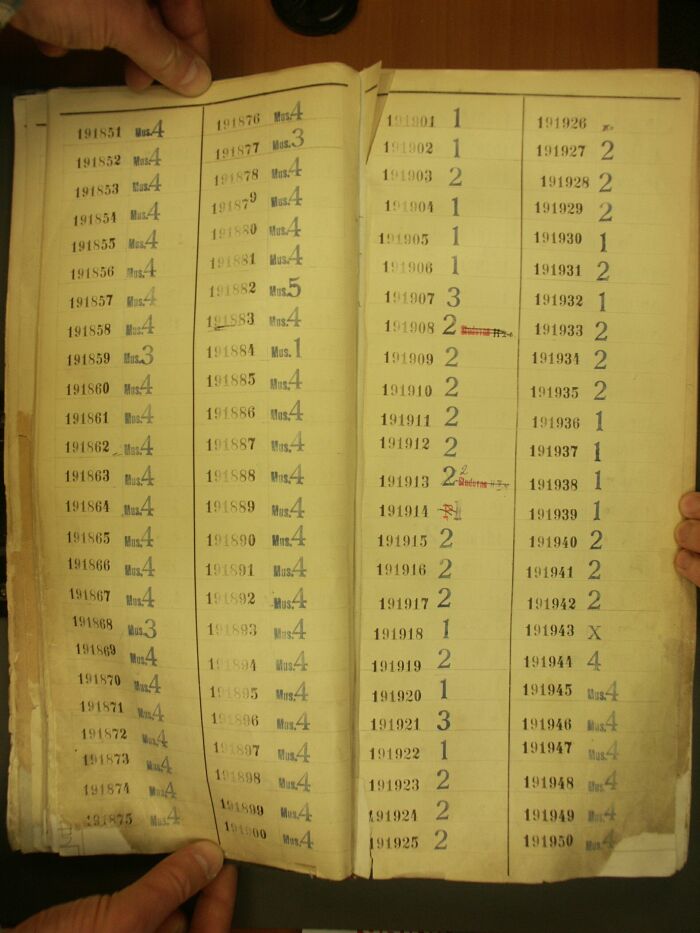 191851 Mus.4
191852 Mus.4
191853 Mus.4
191854 Mus.4
191855 Mus.4
191856 Mus.4
191857 Mus.4
191858 Mus.4
191859 Mus.3
191860 Mus.4
191861 Mus.4
191862 Mus.4
191863 Mus.4
191864 Mus.4
191865 Mus.4
191866 Mus.4
191867 Mus.4
191868 Mus.3
191869 Mus.4
191870 Mus.4
191871 Mus.4
191872 Mus.4
191873 Mus.4
191874 Mus.4
191875 Mus.4
191876 Mus.4
191877 Mus.3
191878 Mus.4
191879 Mus.4
191880 Mus.4
191881 Mus.4
191882 Mus.5
191883 Mus.4
191884 Mus.1
191885 Mus.4
191886 Mus.4
191887 Mus.4
191888 Mus.4
191889 Mus.4
191890 Mus.4
191891 Mus.4
191892 Mus.4
191893 Mus.4
191894 Mus.4
191895 Mus.4
191896 Mus.4
191897 Mus.4
191898 Mus.4
191899 Mus.4
191900 Mus.4
191901 1
191902 1
191903 2
191904 1
191905 1
191906 1
191907 3
191908 2
191909 2
191910 2
191911 2
191912 2
191913 2 2
191914
191915 2
191916 2
191917 2
191918 1
191919 2
191920 1
191921 3
191922 1
191923 2
191924 2
191925 2
191926 x
191927 2
191928 2
191929 2
191930 1
191931 2
191932 1
191933 2
191934 2
191935 2
191936 1
191937 1
191938 1
191939 1
191940 2
191941 2
191942 2
191943 X
191944 4
191945 Mus.4
191946 Mus.4
191947 Mus.4
191948 Mus.4
191949 Mus.4
191950 Mus.4